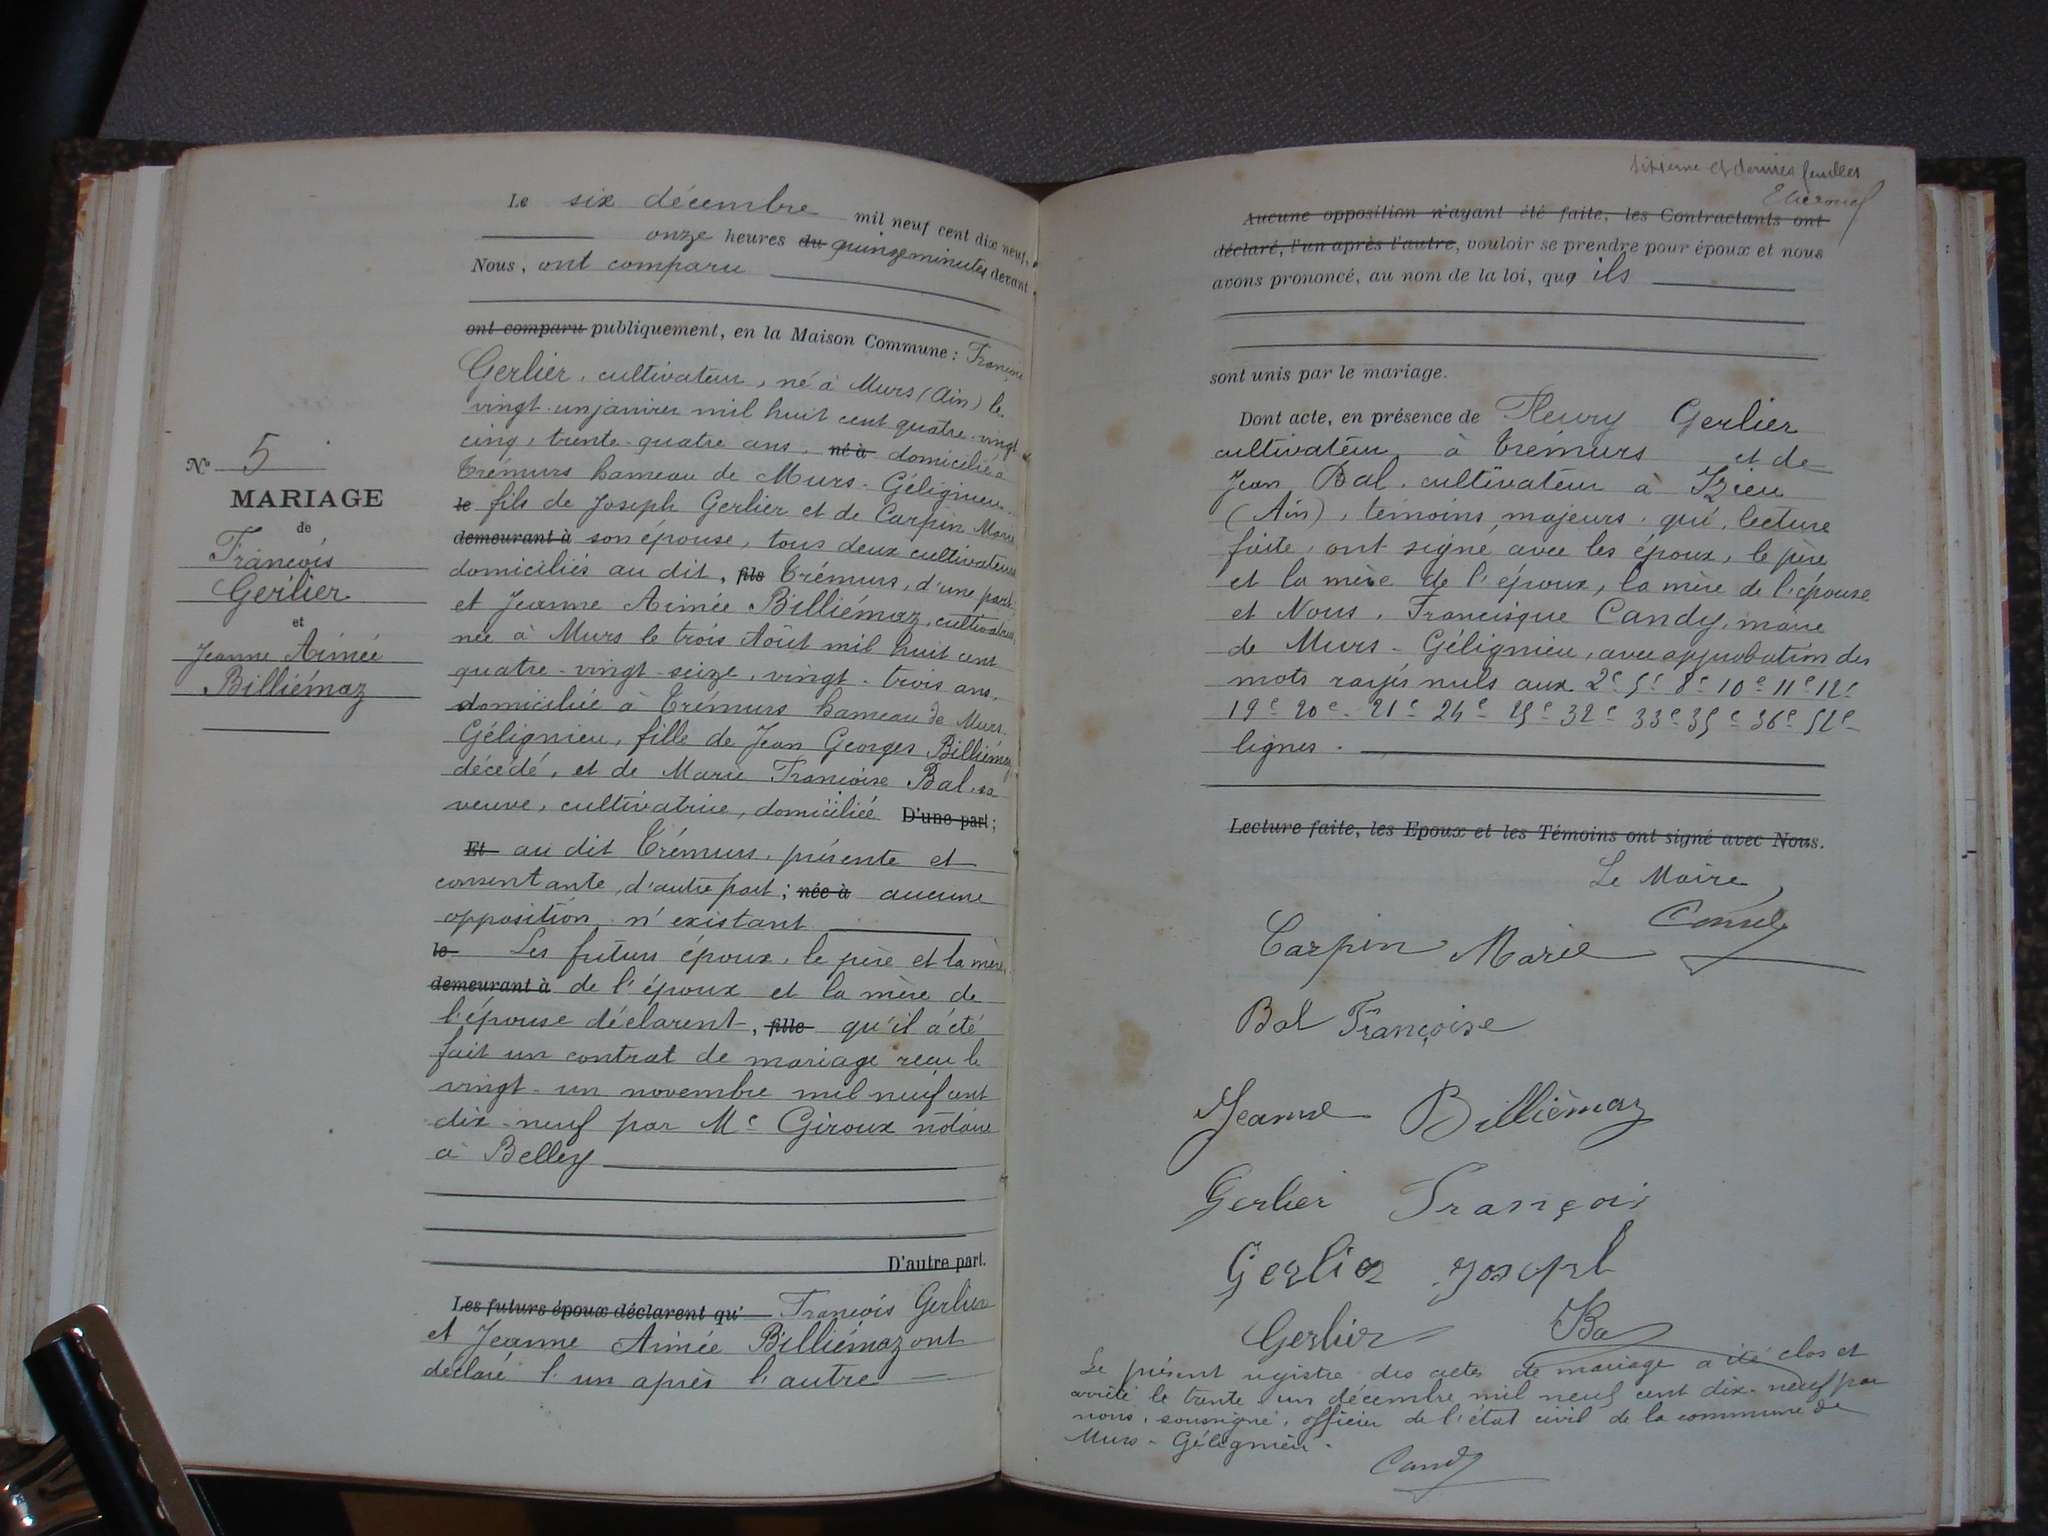 Nº 5
MARIAGE
de
François
Gerlier
et
Jeanne Aimée
Billiémaz
Le six décembre mil neuf cent dix neuf,
onze heures du quinze minutes devant
Nous, ont comparu
ont comparu publiquement, en la Maison Commune : François
Gerlier, cultivateur, né à Murs (Ain) le
vingt-un janvier mil huit cent quatre-vingt
cinq, trente-quatre ans, né à domicilié à
Trémurs hameau de Murs-Géligneu
le fils de Joseph Gerlier et de Carpin Marie
demeurant à son épouse, tous deux cultivateurs
domiciliés au dit, fils Trémurs, d'une part
et Jeanne Aimée Billiémaz, cultivatrice,
née à Murs le trois Août mil huit cent
quatre-vingt-seize, vingt-trois ans,
domiciliée à Trémurs hameau de Murs-
Gélignieu, fille de Jean Georges Billiémaz
décédé, et de Marie Françoise Bal, sa
veuve, cultivatrice, domiciliée D'une part ;
Et au dit Trémurs, présente et
consentante, d'autre part ; née à aucune
opposition n'existant
le Les futurs époux, le père et la mère
demeurant à de l'époux et la mère de
l'épouse déclarent, fille qu'il a été
fait un contrat de mariage reçu le
vingt-un novembre mil neuf cent
dix-neuf par Me Giroux notaire
à Belley
D'autre part.
Les futurs époux déclarent qu' François Gerlier
et Jeanne Aimée Billiémaz ont
déclaré l'un après l'autre
sixième et dernier feuillet
Aucune opposition n'ayant été faite, les Contractants ont
déclaré, l'un après l'autre, vouloir se prendre pour époux et nous
avons prononcé, au nom de la loi, que ils
sont unis par le mariage.
Dont acte, en présence de Fleury Gerlier
cultivateur à Trémurs et de
Jean Bal, cultivateur à Izieu
(Ain), témoins majeurs, qui, lecture
faite, ont signé avec les époux, le père
et la mère de l'époux, la mère de l'épouse
et Nous, Francisque Candy, maire
de Murs-Gélignieu, avec approbation des
mots rayés nuls aux 2e 5e 8e 10e 11e 12e
19e 20e 21e 24e 25e 32e 33e 35e 36e 52e
lignes.
Lecture faite, les Epoux et les Témoins ont signé avec Nous.
Le Maire,
Candy
Carpin Marie
Bal Françoise
Jeanne Billiémaz
Gerlier François
Gerlier Joseph
Gerlier Bal
Le présent registre des actes de mariage a été clos et
arrêté le trente-un décembre mil neuf cent dix-neuf par
nous, soussigné, officier de l'état civil de la commune de
Murs-Gélignieu.
Candy